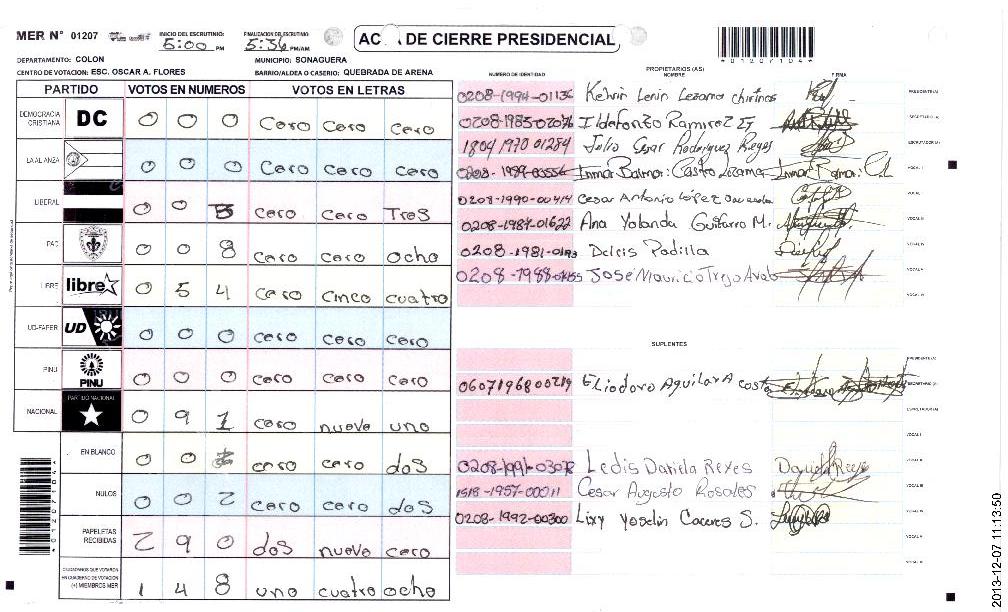 MER N° 01207
INICIO DEL ESCRUTINIO: 5:00 PM
FINALIZACION DEL ESCRUTINIO: 5:36 PM/AM
AC DE CIERRE PRESIDENCIAL
*01207104*
DEPARTAMENTO: COLON
MUNICIPIO: SONAGUERA
CENTRO DE VOTACION: ESC. OSCAR A. FLORES
BARRIO/ALDEA O CASERIO: QUEBRADA DE ARENA
PARTIDO VOTOS EN NUMEROS VOTOS EN LETRAS
DEMOCRACIA CRISTIANA DC 0 0 0 cero cero cero
LA ALIANZA 0 0 0 cero cero cero
LIBERAL 0 0 3 cero cero Tres
PAC 0 0 8 cero cero ocho
LIBRE libre 0 5 4 cero cinco cuatro
UD-FAPER UD 0 0 0 cero cero cero
PINU PINU 0 0 0 cero cero cero
NACIONAL PARTIDO NACIONAL 0 9 1 cero nueve uno
EN BLANCO 0 0 cero cero dos
NULOS 0 0 2 cero cero dos
PAPELETAS RECIBIDAS 2 9 0 dos nueve cero
CIUDADANOS QUE VOTARON EN CUADERNO DE VOTACION (+) MIEMBROS MER 1 4 8 uno cuatro ocho
*01207104*
PROPIETARIOS (AS)
NUMERO DE IDENTIDAD NOMBRE FIRMA
0208-1994-01136 Kelvin Lenin Lezama chirinos PRESIDENTE(A)
0208-1985-02076 Ildefonzo Ramirez SECRETARIO (A)
1804 1970 01284 Julio Cesar Rodriguez Reyes ESCRUTADOR (A)
0208-1989-03556 Inmar Balmori Castro Lezama VOCAL I
0208-1990-00414 Cesar Antonio López VOCAL
0208-1987-01622 Ana Yolanda Guitarro M. VOCAL III
0208-1981-0193 Delcis Padilla VOCAL IV
0208-1988-01155 Jose Mauricio Trejo VOCAL V
VOCAL VI
SUPLENTES
PRESIDENTE (A)
0607196800219 Eliodoro Aguilar Acosta SECRETARIO (A)
ESCRUTADOR (A)
VOCAL I
VOCAL II
0208-1991-03072 Ledis Dariela Reyes
1518-1957-00011 Cesar Augusto Rosales VOCAL III
0208-1992-00300 Lixy Yoselin Caceres S. VOCAL IV
VOCAL V
VOCAL VI
2013-12-07 11:13:50